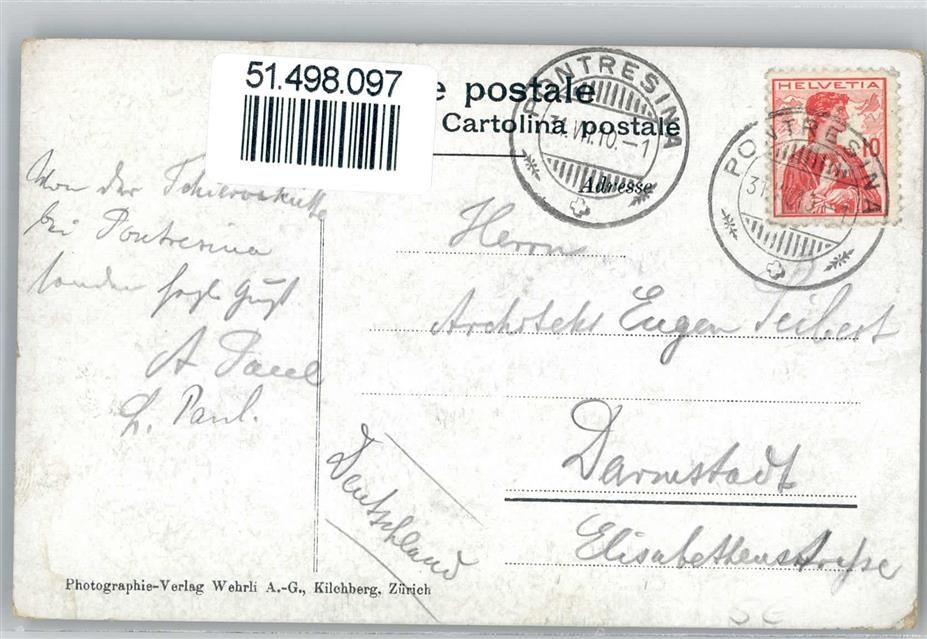 51.498.097
e postale
Cartolina postale
Adresse
PONTRESINA
31.VII.10.-1
HELVETIA
10
PONTRESINA
31.
Von der Tschiervahütte
bei Pontresina
senden herzl. Gruß
A Paul
L. Paul.
Herrn
Architekt Eugen Seibert
Darmstadt
Elisabethenstraße
Deutschland
Photographie-Verlag Wehrli A.-G., Kilchberg, Zürich